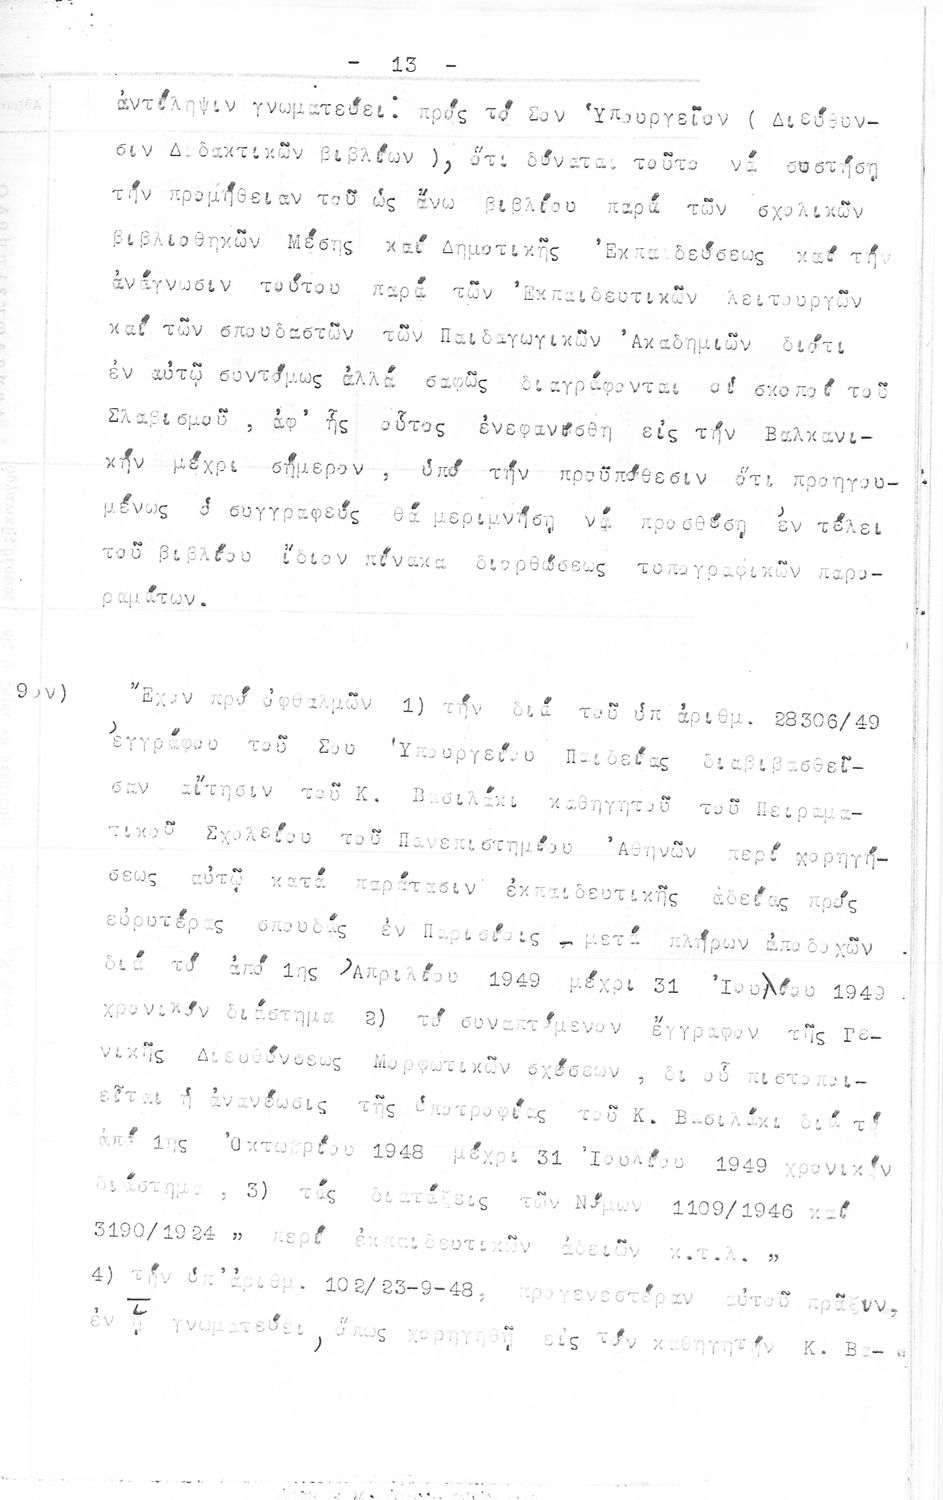 - 13 -
ἀντίληψιν γνωματεύει: πρός τό Σον Ὑπουργεῖον ( Διεύθυν-
σιν Διδακτικῶν βιβλίων ), ὅτι δύναται τοῦτο νά συστήση
τήν προμήθειαν τοῦ ὡς ἄνω βιβλίου παρά τῶν σχολικῶν
βιβλιοθηκῶν Μέσης καί Δημοτικῆς Ἐκπαιδεύσεως καί τήν
ἀνάγνωσιν τούτου παρά τῶν Ἐκπαιδευτικῶν λειτουργῶν
καί τῶν σπουδαστῶν τῶν Παιδαγωγικῶν Ἀκαδημιῶν διότι
ἐν αὐτῷ συντόμως ἀλλά σαφῶς διαγράφονται οἱ σκοποί τοῦ
Σλαβισμοῦ , ἀφ' ἧς οὗτος ἐνεφανίσθη εἰς τήν Βαλκανι-
κήν μέχρι σήμερον , ὑπό τήν προϋπόθεσιν ὅτι προηγου-
μένως ὁ συγγραφεύς θά μεριμνήση νά προσθέση ἐν τέλει
τοῦ βιβλίου ἴδιον πίνακα διορθώσεως τυπογραφικῶν παρο-
ραμάτων.
9ον) Ἔχον πρό ὀφθαλμῶν 1) τήν διά τοῦ ὑπ ἀριθμ. 28306/49
ἐγγράφου τοῦ Σου Ὑπουργείου Παιδείας διαβιβασθεῖ-
σαν αἴτησιν τοῦ Κ. Βασιλάκι καθηγητοῦ τοῦ Πειραμα-
τικοῦ Σχολείου τοῦ Πανεπιστημίου Ἀθηνῶν περί χορηγή-
σεως αὐτῷ κατά παράτασιν ἐκπαιδευτικῆς ἀδείας πρός
εὐρυτέρας σπουδάς ἐν Παρισίοις - μετά πλήρων ἀποδοχῶν
διά τό ἀπό 1ης Ἀπριλίου 1949 μέχρι 31 Ἰουλίου 1949
χρονικόν διάστημα 2) τό συναπτόμενον ἔγγραφον τῆς Γε-
νικῆς Διευθύνσεως Μορφωτικῶν σχέσεων , δι οὗ πιστοποι-
εῖται ἡ ἀνανέωσις τῆς ὑποτροφίας τοῦ Κ. Βασιλάκι διά τό
ἀπό 1ης Ὀκτωβρίου 1948 μέχρι 31 Ἰουλίου 1949 χρονικόν
διάστημα , 3) τάς διατάξεις τῶν Νόμων 1109/1946 καί
3190/1924 " περί ἐκπαιδευτικῶν ἀδειῶν κ.τ.λ. "
4) τήν ὑπ'ἀριθμ. 102/23-9-48, προγενεστέραν αὐτοῦ πρᾶξιν,
ἐν ᾗ γνωματεύει , ὅπως χορηγηθῇ εἰς τόν καθηγητήν Κ. Βα-